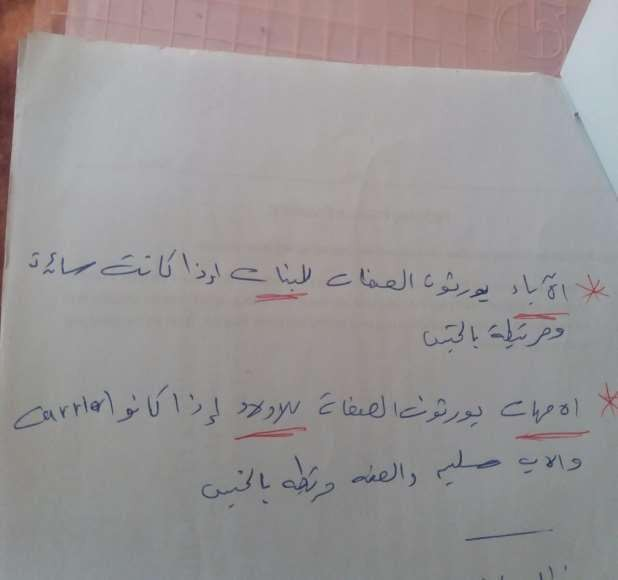 * الآباء يورثون الصفات للبنات إذا كانت سائدة
ومرتبطة بالجنس
* الامهات يورثون الصفات للاولاد إذا كانوا carrier
والاب سليم والصفه مرتبطه بالجنس